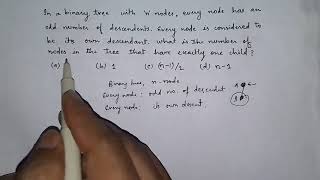 In a binary tree with 'n' nodes, every node has an
odd number of descendents. Every node is considered to
be its own descendant. What is the number of
nodes in the tree that have exactly one child?
(a) (b) 1 (c) (n-1)/2 (d) n-1
Binary tree, n-node
Every node: odd no. of descendent
Every node: is own descent.